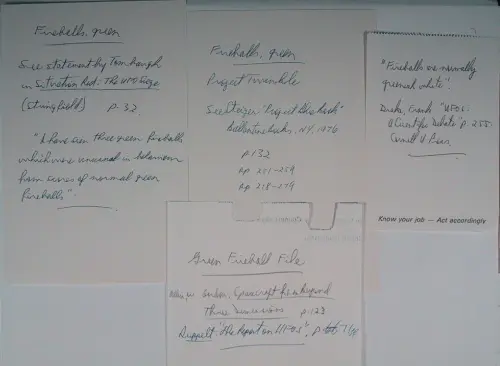 Fireballs, green
See statement by Tombaugh
in Situation Red: The UFO Siege
(Stringfield) p. 32
"I have seen three green fireballs
which were unusual in behavior
from scores of normal green
fireballs".
Fireballs, green
Project Twinkle
See Steiger "Project Blue Book"
Ballantine Books, NY, 1976
p 132
pp 251-259
pp 218-279
"Fireballs are normally
greenish white".
Drake, Frank "UFOs:
A Scientific Debate" p. 255
Cornell U Press
Know your job — Act accordingly
Green Fireball File
Allen, W. Gordon, Spacecraft from Beyond
Three Dimensions p. 123
Ruppelt "The Report on UFOs", p